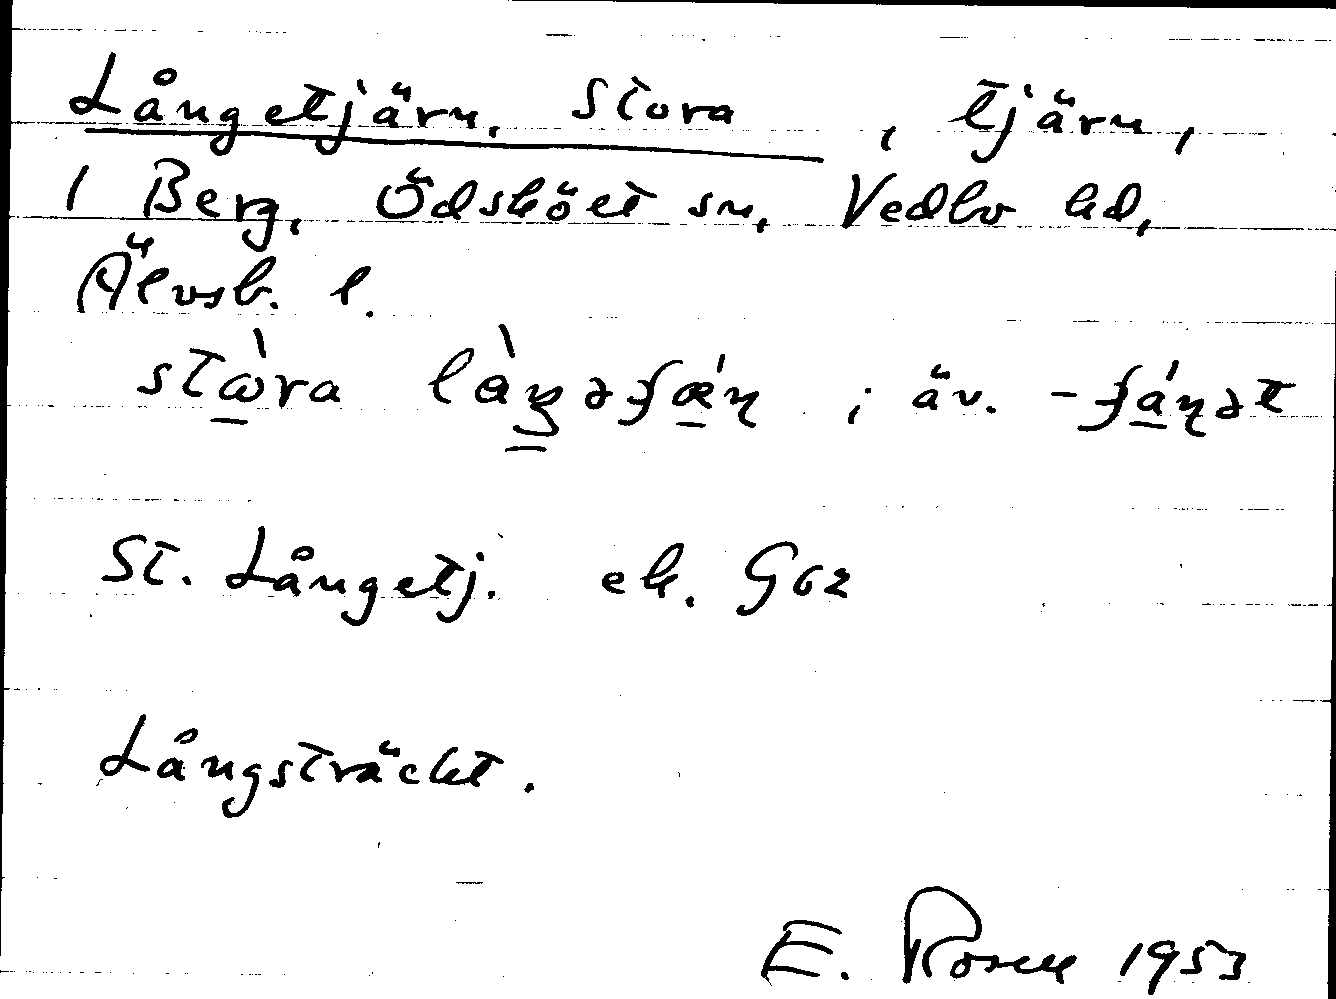 Långetjärn, Stora, tjärn,
1 Berg, Ödsköet sn, Vedbo hd,
Älvsb. l.
stὼra là̱ŋəʃǽɳ ; äv. -ʃǽɳət
St. Långetj. ek. G62
Långsträckt.
E. Rosen 1953